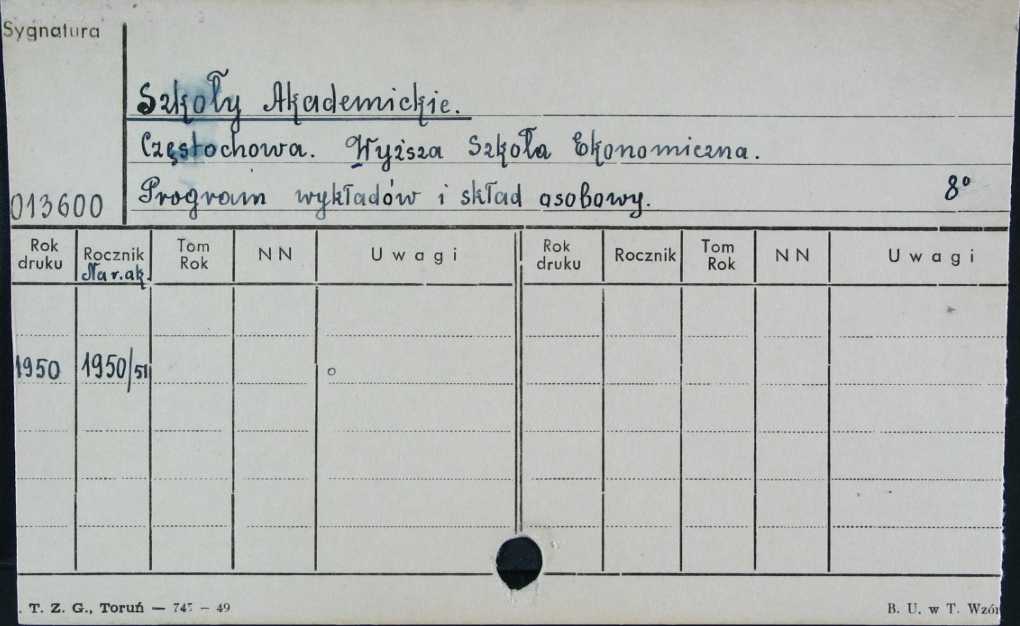 Sygnatura
Szkoły Akademickie.
Częstochowa. Wyższa Szkoła Ekonomiczna.
013600 Program wykładów i skład osobowy. 8°
Rok druku Rocznik Nar.ak. Tom Rok NN Uwagi Rok druku Rocznik Tom Rok NN Uwagi
1950 1950/51
. T. Z. G., Toruń — 747 — 49 B. U. w T. Wzór